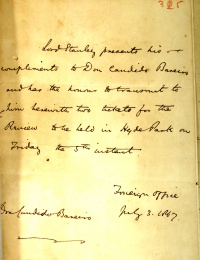 325
Lord Stanley presents his
compliments to Don Candido Bareiro
and has the honour to transmit to
him herewith two tickets for the
Review to be held in Hyde Park on
Friday the 5th instant.
Foreign Office
July 3. 1867
Don Candido Bareiro